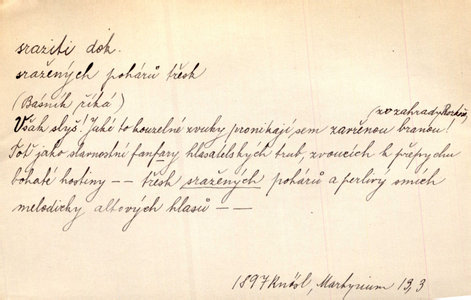 sraziti dok.
sražených pohárů třesk
(Básník říká)
(ze zahrady
Však slyš! Jaké to kouzelné zvuky pronikají sem zavřenou branou!
Toť jako slavnostní fanfary hlasatelských trub, zvoucích k přepychu
bohaté hostiny — — třesk sražených pohárů a perlivý smích
melodicky altových hlasů — —
1897 Knösl, Martyrium 13,3